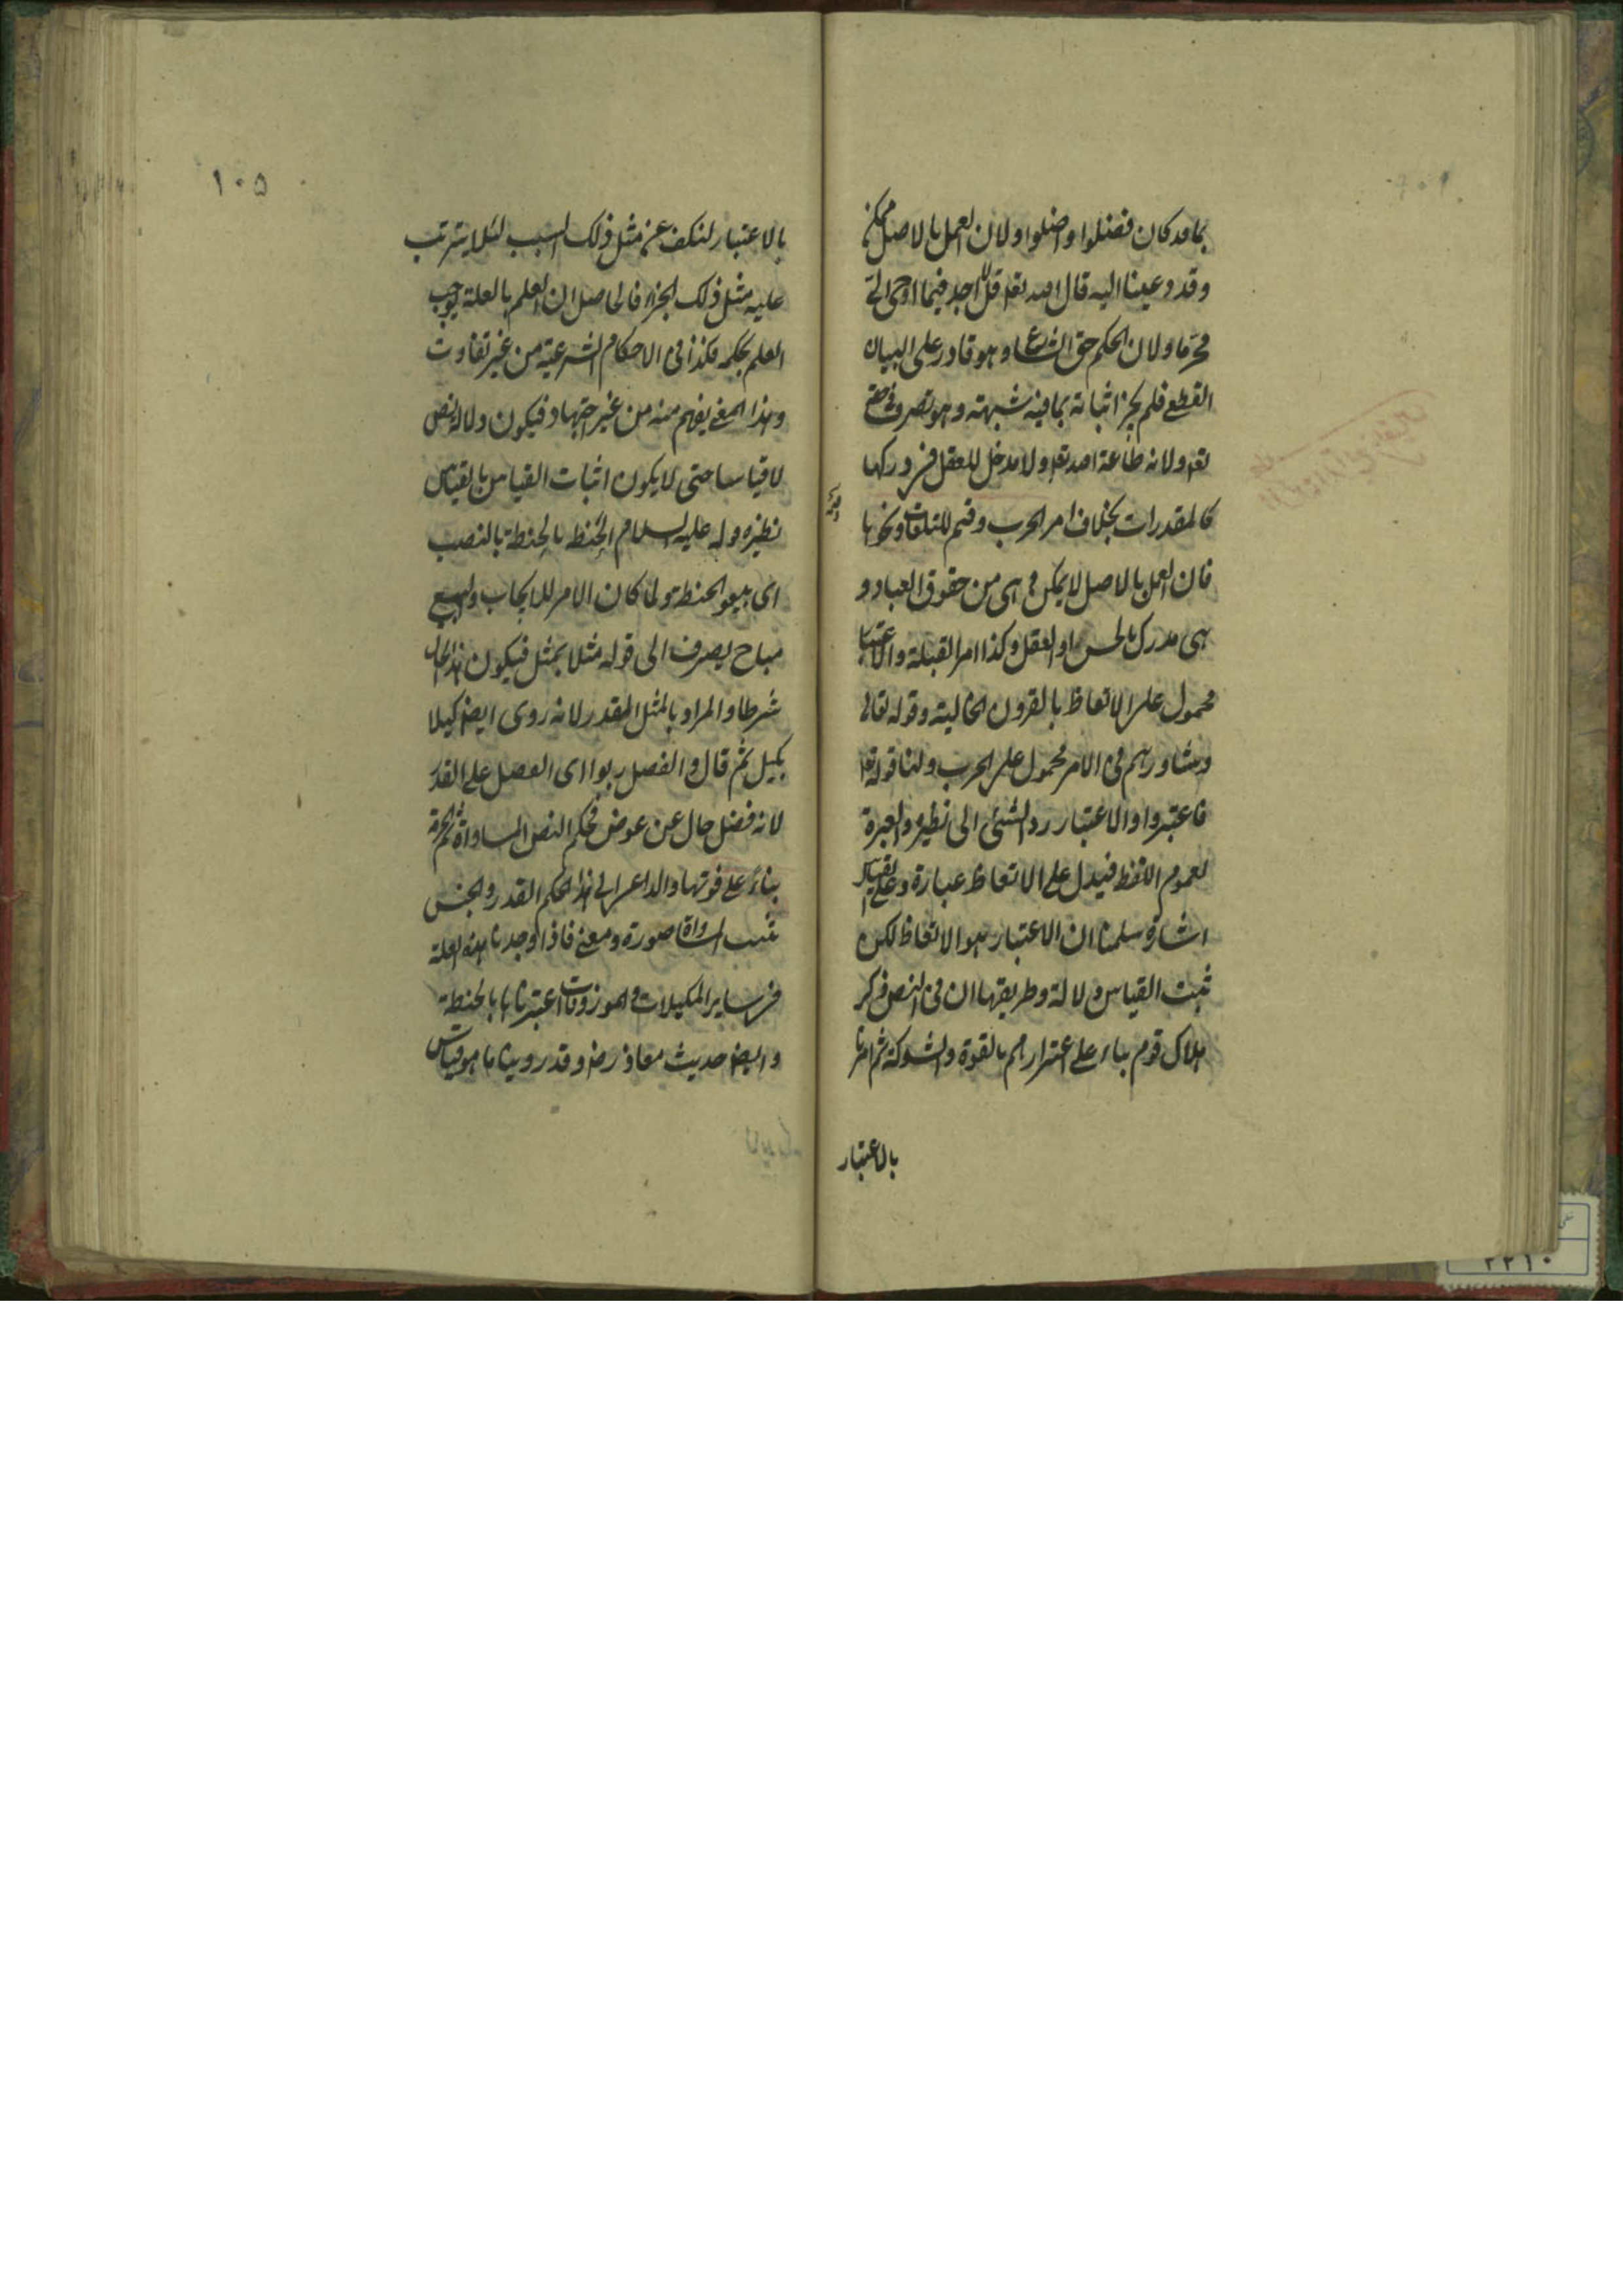 بما قد كان فضلوا واضلوا ولان العمل بالاصل ممكن
وقد دعينا اليه قال الله تعا قل لا اجد فيما اوحى الى
محرما ولان الحكم حق الشارع وهو قادر على البيان
القطعى فلم يجز اثباته بما فيه شبهة وهو تصرف فى حقه
تعا ولانه طاعة الله تعا ولا مدخل للعقل فى دركها
كالمقدرات بخلاف امر الحرب وقيم المتلفات ونحوها
فان العمل بالاصل لا يمكن و هى من حقوق العباد و
هى مدرك بالحس او العقل وكذا امر القبلة والاعتبار
محمول على الاتعاظ بالقرون الخالية وقوله تعالى
وشاورهم فى الامر محمول على الحرب ولنا قوله تعا
فاعتبروا والاعتبار رد الشئ الى نظيره والعبرة
لعموم اللفظ فيدل على الاتعاظ عبارة وعلى القياس
اشارة سلمنا ان الاعتبار هو الاتعاظ لكن
ثبت القياس دلالة وطريقها ان فى النص ذكر
هلاك قوم بناء على اغترارهم بالقوة والشوكة ثم امرنا
بالاعتبار
١٠٥
بالاعتبار لنكف عن مثل ذلك السبب لئلا يترتب
عليه مثل ذلك الجزاء فالحاصل ان العلم بالعلة يوجب
العلم بحكمه فكذا فى الاحكام الشرعية من غير تفاوت
وهذا المعنى يفهم منه من غير اجتهاد فيكون دلالة نص
لا قياسا حتى لا يكون اثبات القياس بالقياس
نظيره قوله عليه السلام الحنطة بالحنطة بالنصب
اى بيعوا الحنطة ولما كان الامر للايجاب والبيع
مباح يصرف الى قوله مثلا بمثل فيكون هذا الحال
شرطا والمراد بالمثل المقدر لانه روى ايضا كيلا
بكيل ثم قال والفضل ربوا اى الفضل على القدر
لانه فضل خال عن عوض فحكم النص المساواة ثم الحرمة
بناء على فوتها والداعى الى هذا الحكم القدر والجنس
اذ بهما تثبت المساواة صورة ومعنى فاذا وجدنا هذه العلة
فى سائر المكيلات و الموزونات اعتبرناها بالحنطة
وايضا حديث معاذ رض وقد روينا ما هو قياس
٢٢١٠